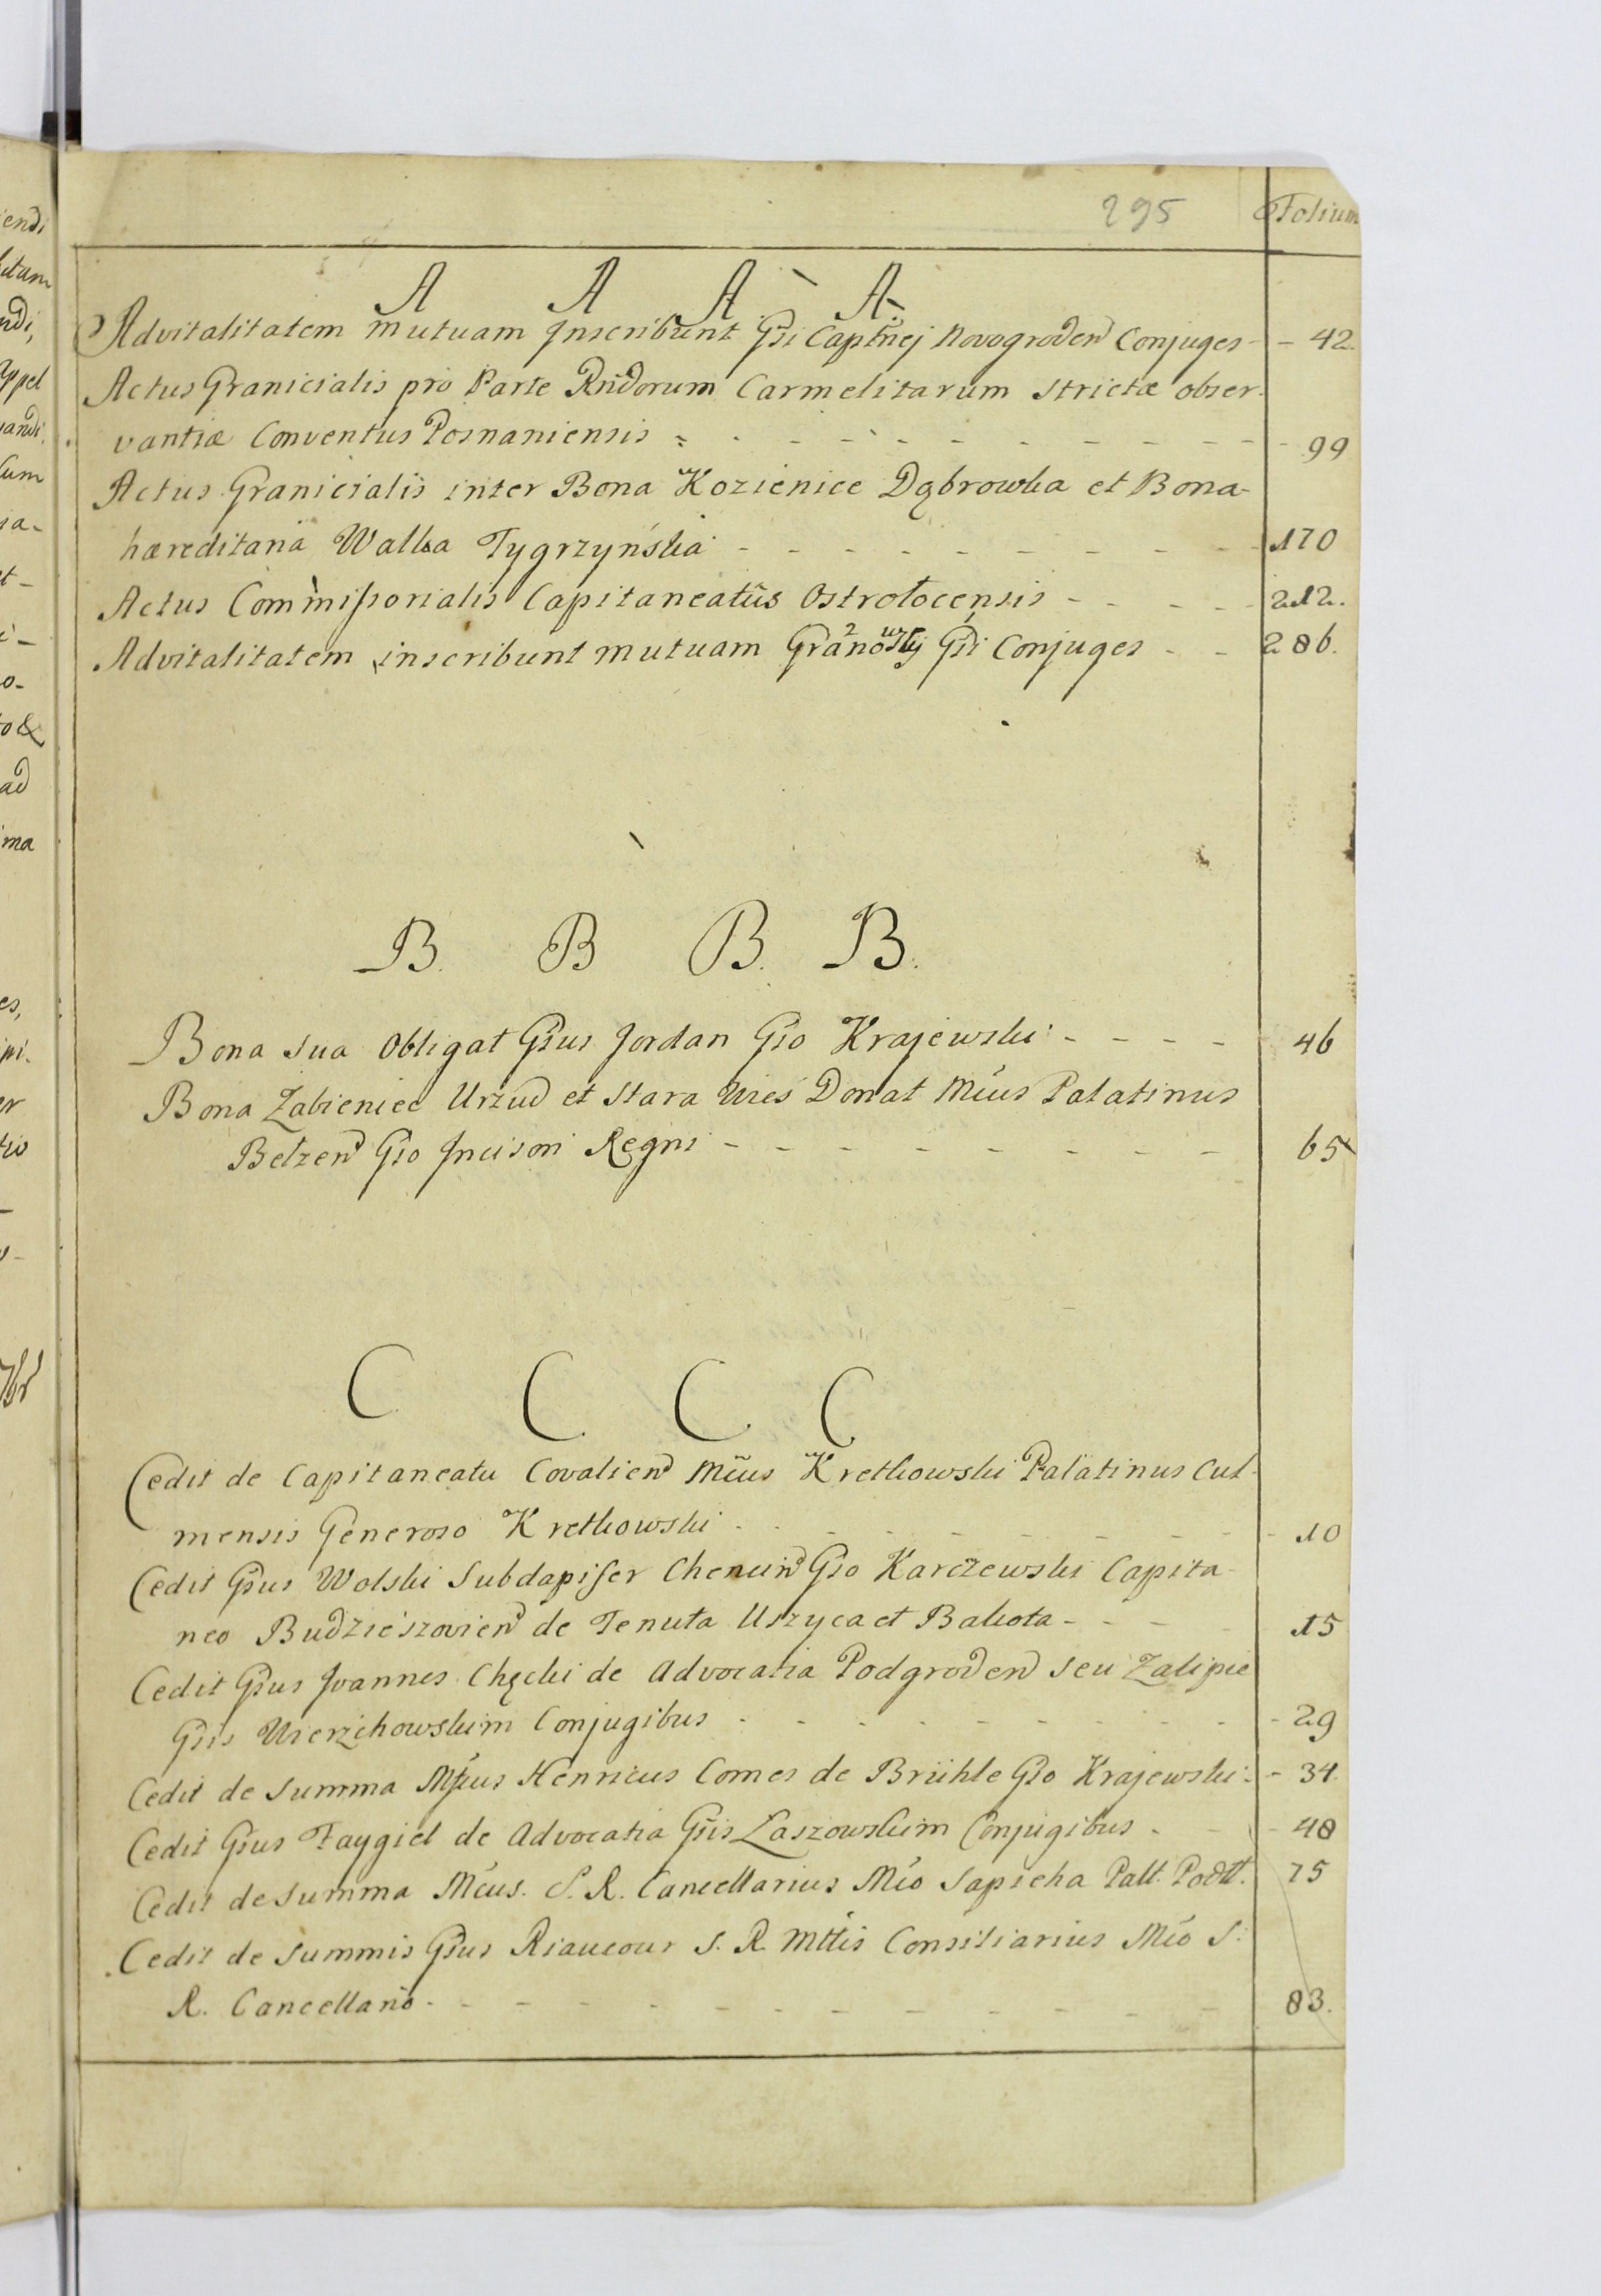 295 Folium
A A A A
Advitalitatem mutuam Inscribunt Gsi Captnej Novogroden Conjuges - - 42.
Actus Granicialis pro Parte Rndorum Carmelitarum Strictæ obser-
vantiæ Conventus Posnaniensis - - - - - - - - 99
Actus Granicialis inter Bona Kozienice Dąbrowka et Bona
hæreditaria Walka Tygrzyńska - - - - - - - - 170
Actus Commissorialis Capitaneatûs Ostrołecensis - - - - 212.
Advitalitatem inscribunt mutuam Granowscy Gsi Conjuges - - 286.
B. B B. B.
Bona sua Obligat Gsus Jordan Gso Krajewski - - - - 46
Bona Zabieniec Urzud et Stara Wies Donat Mcus Palatinus
Belzen Gso Incisori Regni - - - - - - - - 65
C C. C. C
Cedit de Capitaneatu Covalien Mcus Kretkowski Palatinus Cul-
mensis Generoso Kretkowski - - - - - - - - 10
Cedit Gsus Wolski Subdapifer Chencin Gso Karczewski Capita-
neo Budzieszovien de Tenuta Uszyca et Bakota - - - - 15
Cedit Gsus Joannes Chęcki de Advocatia Podgroden seu Zalipie
Gsis Wierzchowskim Conjugibus - - - - - - - - 29
Cedit de Summa Mcus Henricus Comes de Brühle Gso Krajewski - 34.
Cedit Gsus Faygiel de Advocatia Gsis Laszowskim Conjugibus - - 48
Cedit de Summa Mcus. S. R. Cancellarius Mco Sapieha Patt. Podtt. 75
Cedit de Summis Gsus Riaucour S. R. Mttis Consiliarius Mco S.
R. Cancellario - - - - - - - - 83.